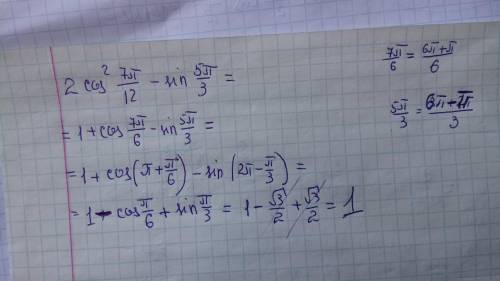 2 cos² 7π/12 − sin 5π/3 =
= 1 + cos 7π/6 − sin 5π/3 =
= 1 + cos(π + π/6) − sin(2π − π/3) =
= 1 − cos π/6 + sin π/3 = 1 − √3/2 + √3/2 = 1
7π/6 = 6π+π/6
5π/3 = 6π−π/3